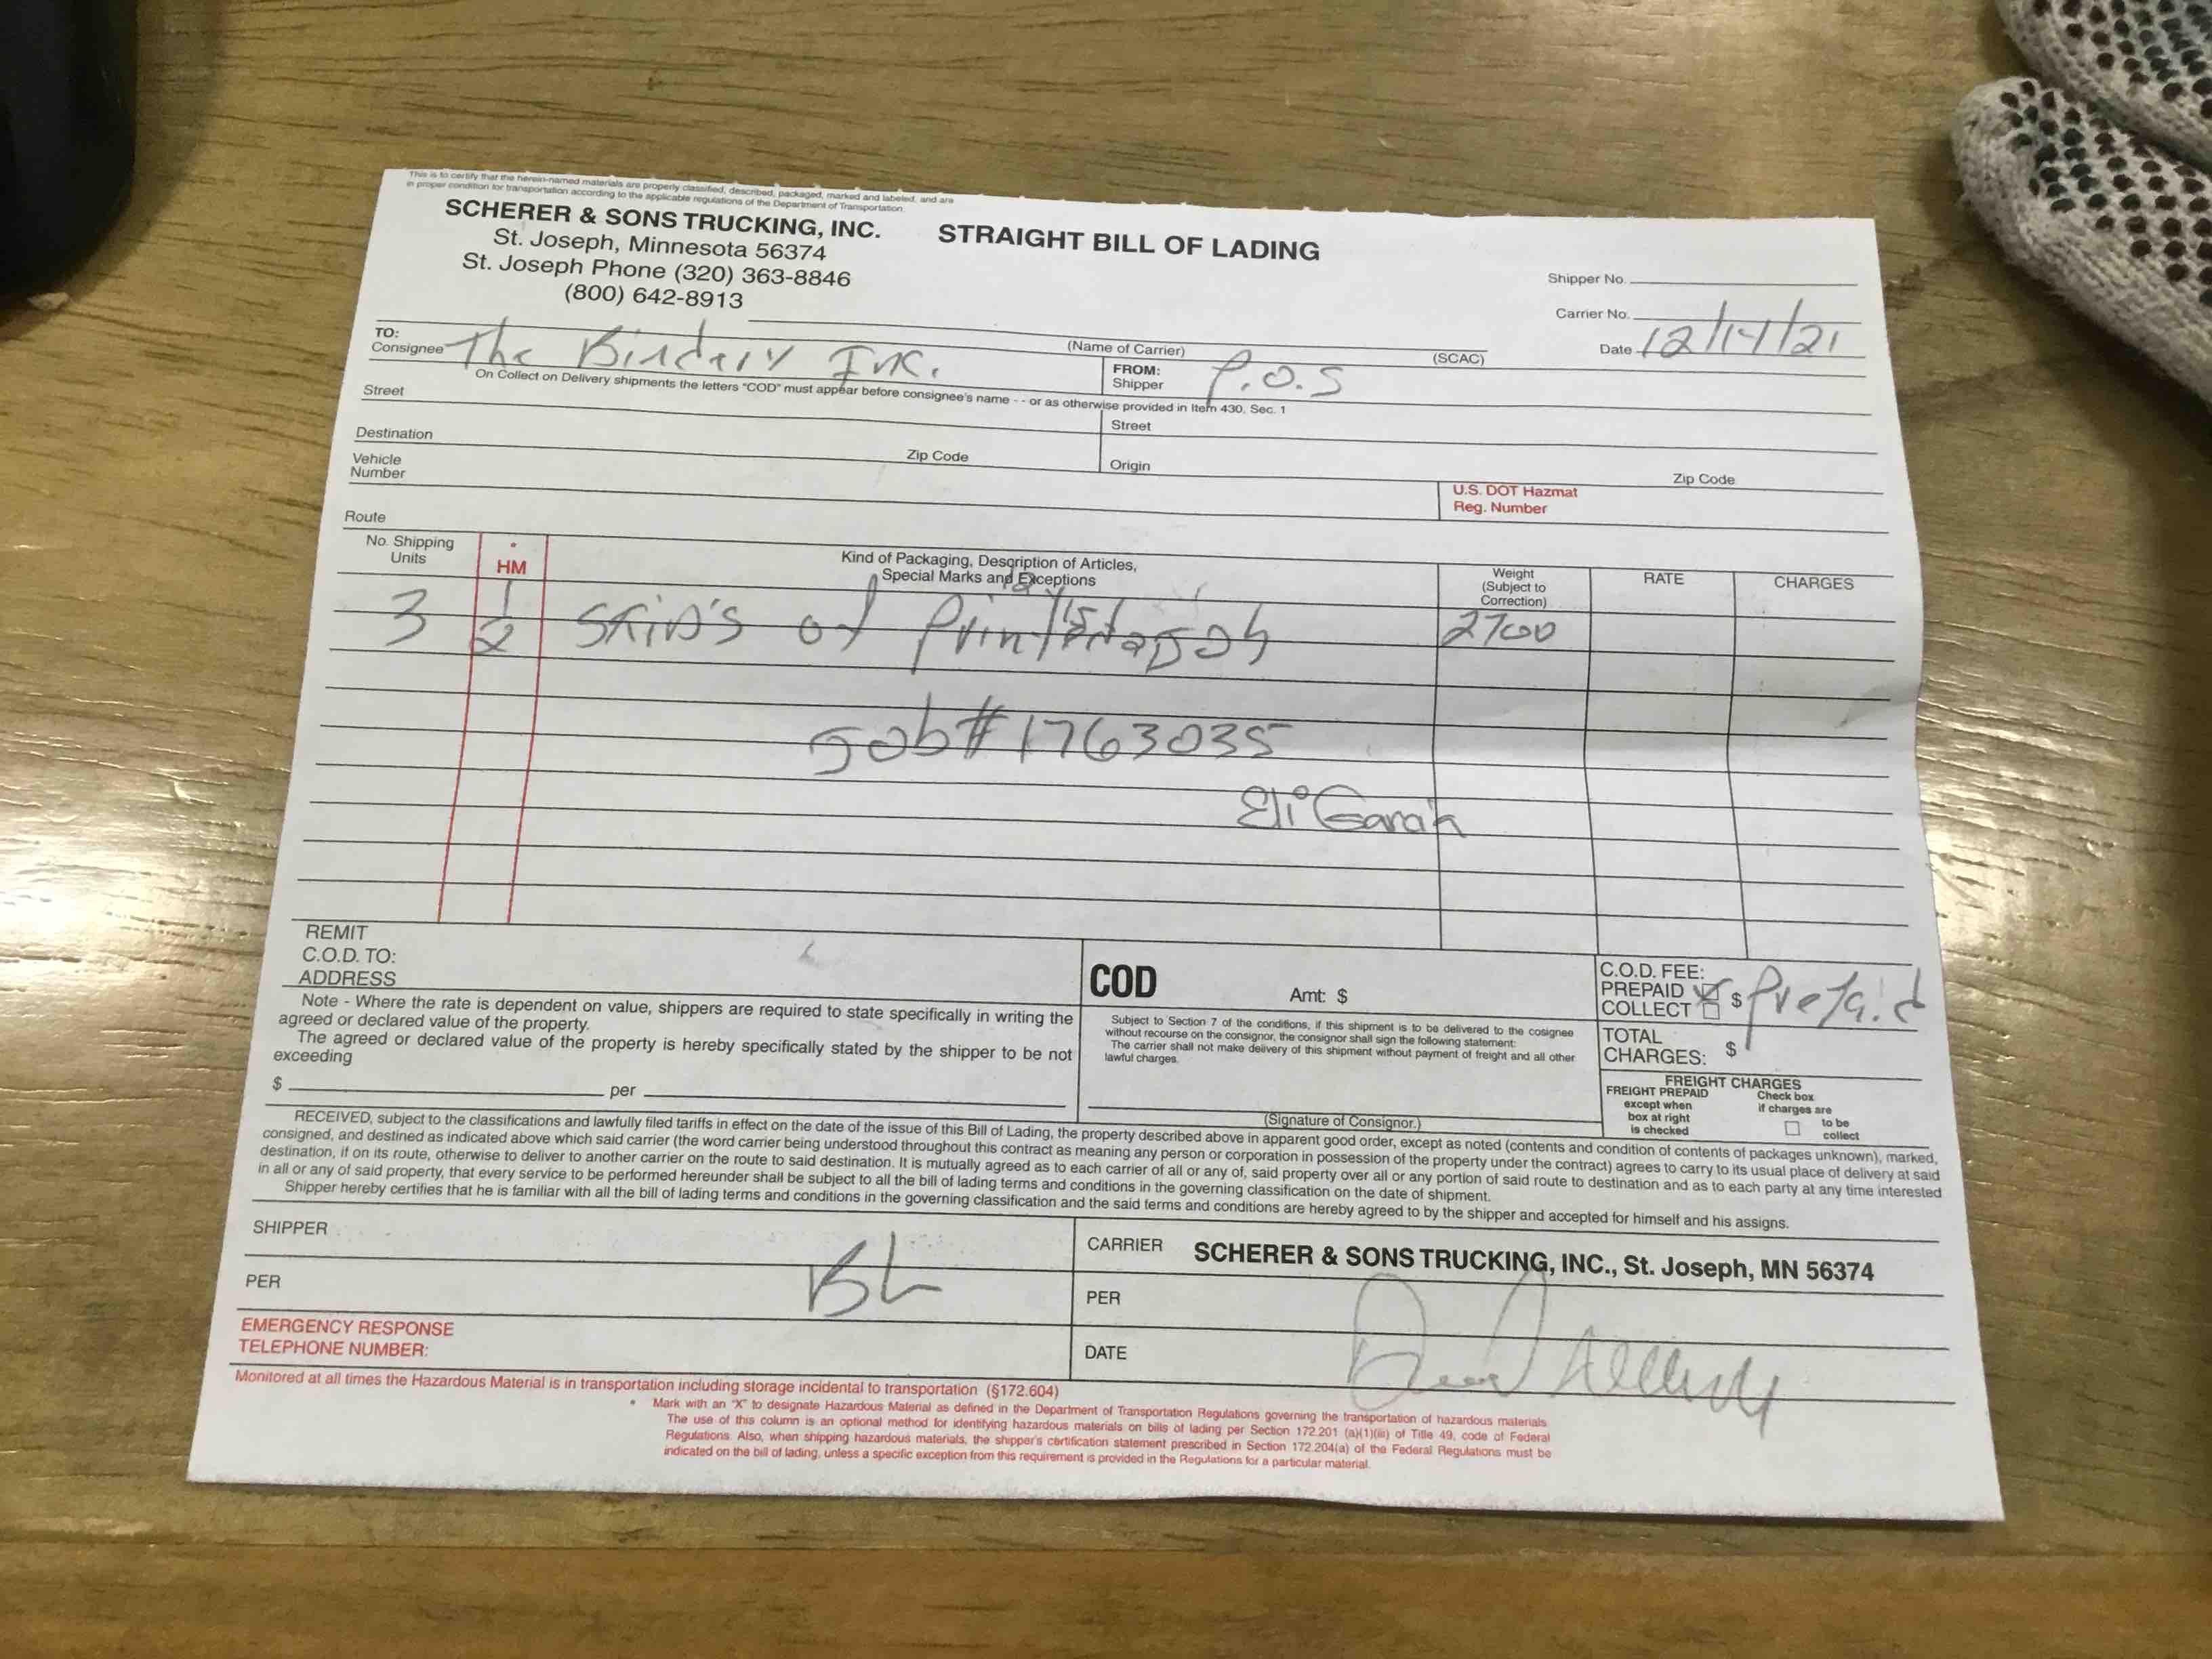 This is to certify that the herein-named materials are properly classified, described, packaged, marked and labeled, and are
in proper condition for transportation according to the applicable regulations of the Department of Transportation.
SCHERER & SONS TRUCKING, INC.
St. Joseph, Minnesota 56374
St. Joseph Phone (320) 363-8846
(800) 642-8913
STRAIGHT BILL OF LADING
Shipper No.
Carrier No.
Date
(Name of Carrier)
(SCAC)
TO:
Consignee The Bindery Inc.
FROM:
Shipper P.O.S
On Collect on Delivery shipments the letters "COD" must appear before consignee's name - - or as otherwise provided in Item 430, Sec. 1
Street
Street
Destination
Zip Code
Origin
Zip Code
Vehicle
Number
U.S. DOT Hazmat
Reg. Number
Route
No. Shipping
Units
*
HM
Kind of Packaging, Description of Articles,
Special Marks and Exceptions
Weight
(Subject to
Correction)
RATE
CHARGES
3
Skid's of
2700
Job# 1763035
Eli
REMIT
C.O.D. TO:
ADDRESS
COD
Amt: $
C.O.D. FEE:
PREPAID
COLLECT $ Prepaid
Note - Where the rate is dependent on value, shippers are required to state specifically in writing the
agreed or declared value of the property.
The agreed or declared value of the property is hereby specifically stated by the shipper to be not
exceeding
$ per
Subject to Section 7 of the conditions, if this shipment is to be delivered to the cosignee
without recourse on the consignor, the consignor shall sign the following statement:
The carrier shall not make delivery of this shipment without payment of freight and all other
lawful charges.
(Signature of Consignor.)
TOTAL
CHARGES: $
FREIGHT CHARGES
FREIGHT PREPAID
except when
box at right
is checked
Check box
if charges are
to be
collect
RECEIVED, subject to the classifications and lawfully filed tariffs in effect on the date of the issue of this Bill of Lading, the property described above in apparent good order, except as noted (contents and condition of contents of packages unknown), marked,
consigned, and destined as indicated above which said carrier (the word carrier being understood throughout this contract as meaning any person or corporation in possession of the property under the contract) agrees to carry to its usual place of delivery at said
destination, if on its route, otherwise to deliver to another carrier on the route to said destination. It is mutually agreed as to each carrier of all or any of, said property over all or any portion of said route to destination and as to each party at any time interested
in all or any of said property, that every service to be performed hereunder shall be subject to all the bill of lading terms and conditions in the governing classification on the date of shipment.
Shipper hereby certifies that he is familiar with all the bill of lading terms and conditions in the governing classification and the said terms and conditions are hereby agreed to by the shipper and accepted for himself and his assigns.
SHIPPER
PER
BL
CARRIER SCHERER & SONS TRUCKING, INC., St. Joseph, MN 56374
PER
DATE
EMERGENCY RESPONSE
TELEPHONE NUMBER:
Monitored at all times the Hazardous Material is in transportation including storage incidental to transportation (§172.604)
* Mark with an "X" to designate Hazardous Material as defined in the Department of Transportation Regulations governing the transportation of hazardous materials.
The use of this column is an optional method for identifying hazardous materials on bills of lading per Section 172.201 (a)(1)(iii) of Title 49, code of Federal
Regulations. Also, when shipping hazardous materials, the shipper's certification statement prescribed in Section 172.204(a) of the Federal Regulations must be
indicated on the bill of lading, unless a specific exception from this requirement is provided in the Regulations for a particular material.